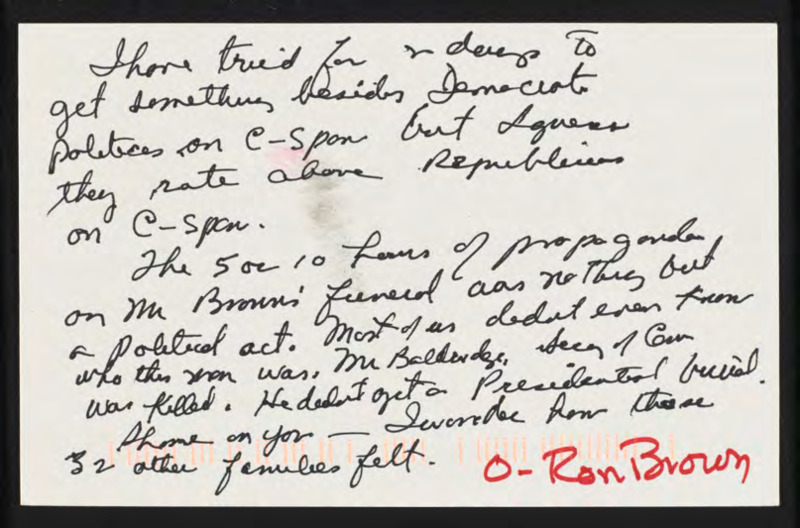 I have tried for 2 days to
get something besides Democrats
Politices on C-Span but I guess
they rate above Republicans
on C-Span.
The 5 or 10 hours of propaganda
on Mr Brown's funeral was nothing but
a Political act. Most of us dednt even know
who this man was. Mr Balderidge, Secy of Com
was killed. He dednt get a Presidential burial.
Shame on you — I wonder how those
32 other families felt.
O- Ron Brown